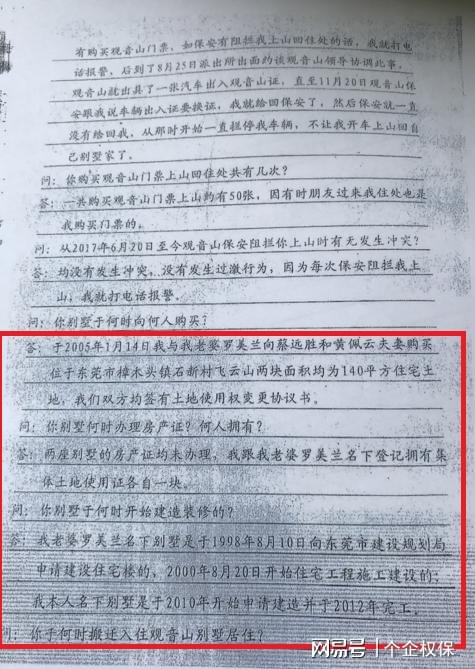 有购买观音山门票，如保安有阻拦我上山回住处的话，我就打电
话报警，后到了8月25日派出所出面约谈观音山领导协调此事，
观音山就出具了一张汽车出入观音山证，直至11月20日观音山保
安跟我说车辆出入证要换证，我就给回保安了，然后保安就一直
没有给回我，从那时开始一直拦停我车辆，不让我开车上山回自
己别墅家了。
问：你购买观音山门票上山回住处共有几次？
答：一共购买观音山门票上山约有50张，因有时朋友过来我住处也是
我购买门票的。
问：从2017年6月20日至今观音山保安阻拦你上山时有无发生冲突？
答：均没有发生冲突，没有发生过激行为，因为每次保安阻拦我上
山，我就打电话报警。
问：你别墅于何时向何人购买？
答：于2005年1月14日我与我老婆罗美兰向蔡远胜和黄佩云夫妻购买
位于东莞市樟木头镇石新村飞云山两块面积均为140平方住宅土
地，我们双方均签有土地使用权变更协议书。
问：你别墅何时办理房产证？何人拥有？
答：两座别墅的房产证均未办理，我跟我老婆罗美兰名下登记拥有集
体土地使用证各自一块。
问：你别墅于何时开始建造装修的？
答：我老婆罗美兰名下别墅是于1998年8月10日向东莞市建设规划局
申请建设住宅楼的，2000年8月20日开始住宅工程施工建设的；
我本人名下别墅是于2010年开始申请建造并于2012年完工。
问：你于何时搬迁入住观音山别墅居住？
网易号 | 个企权保